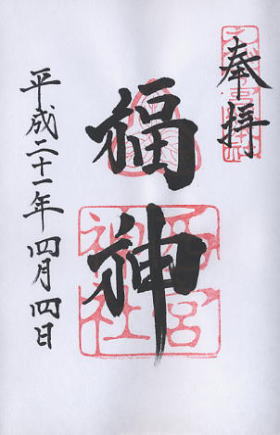 奉拝
福神
西宮神社
平成二十一年四月四日